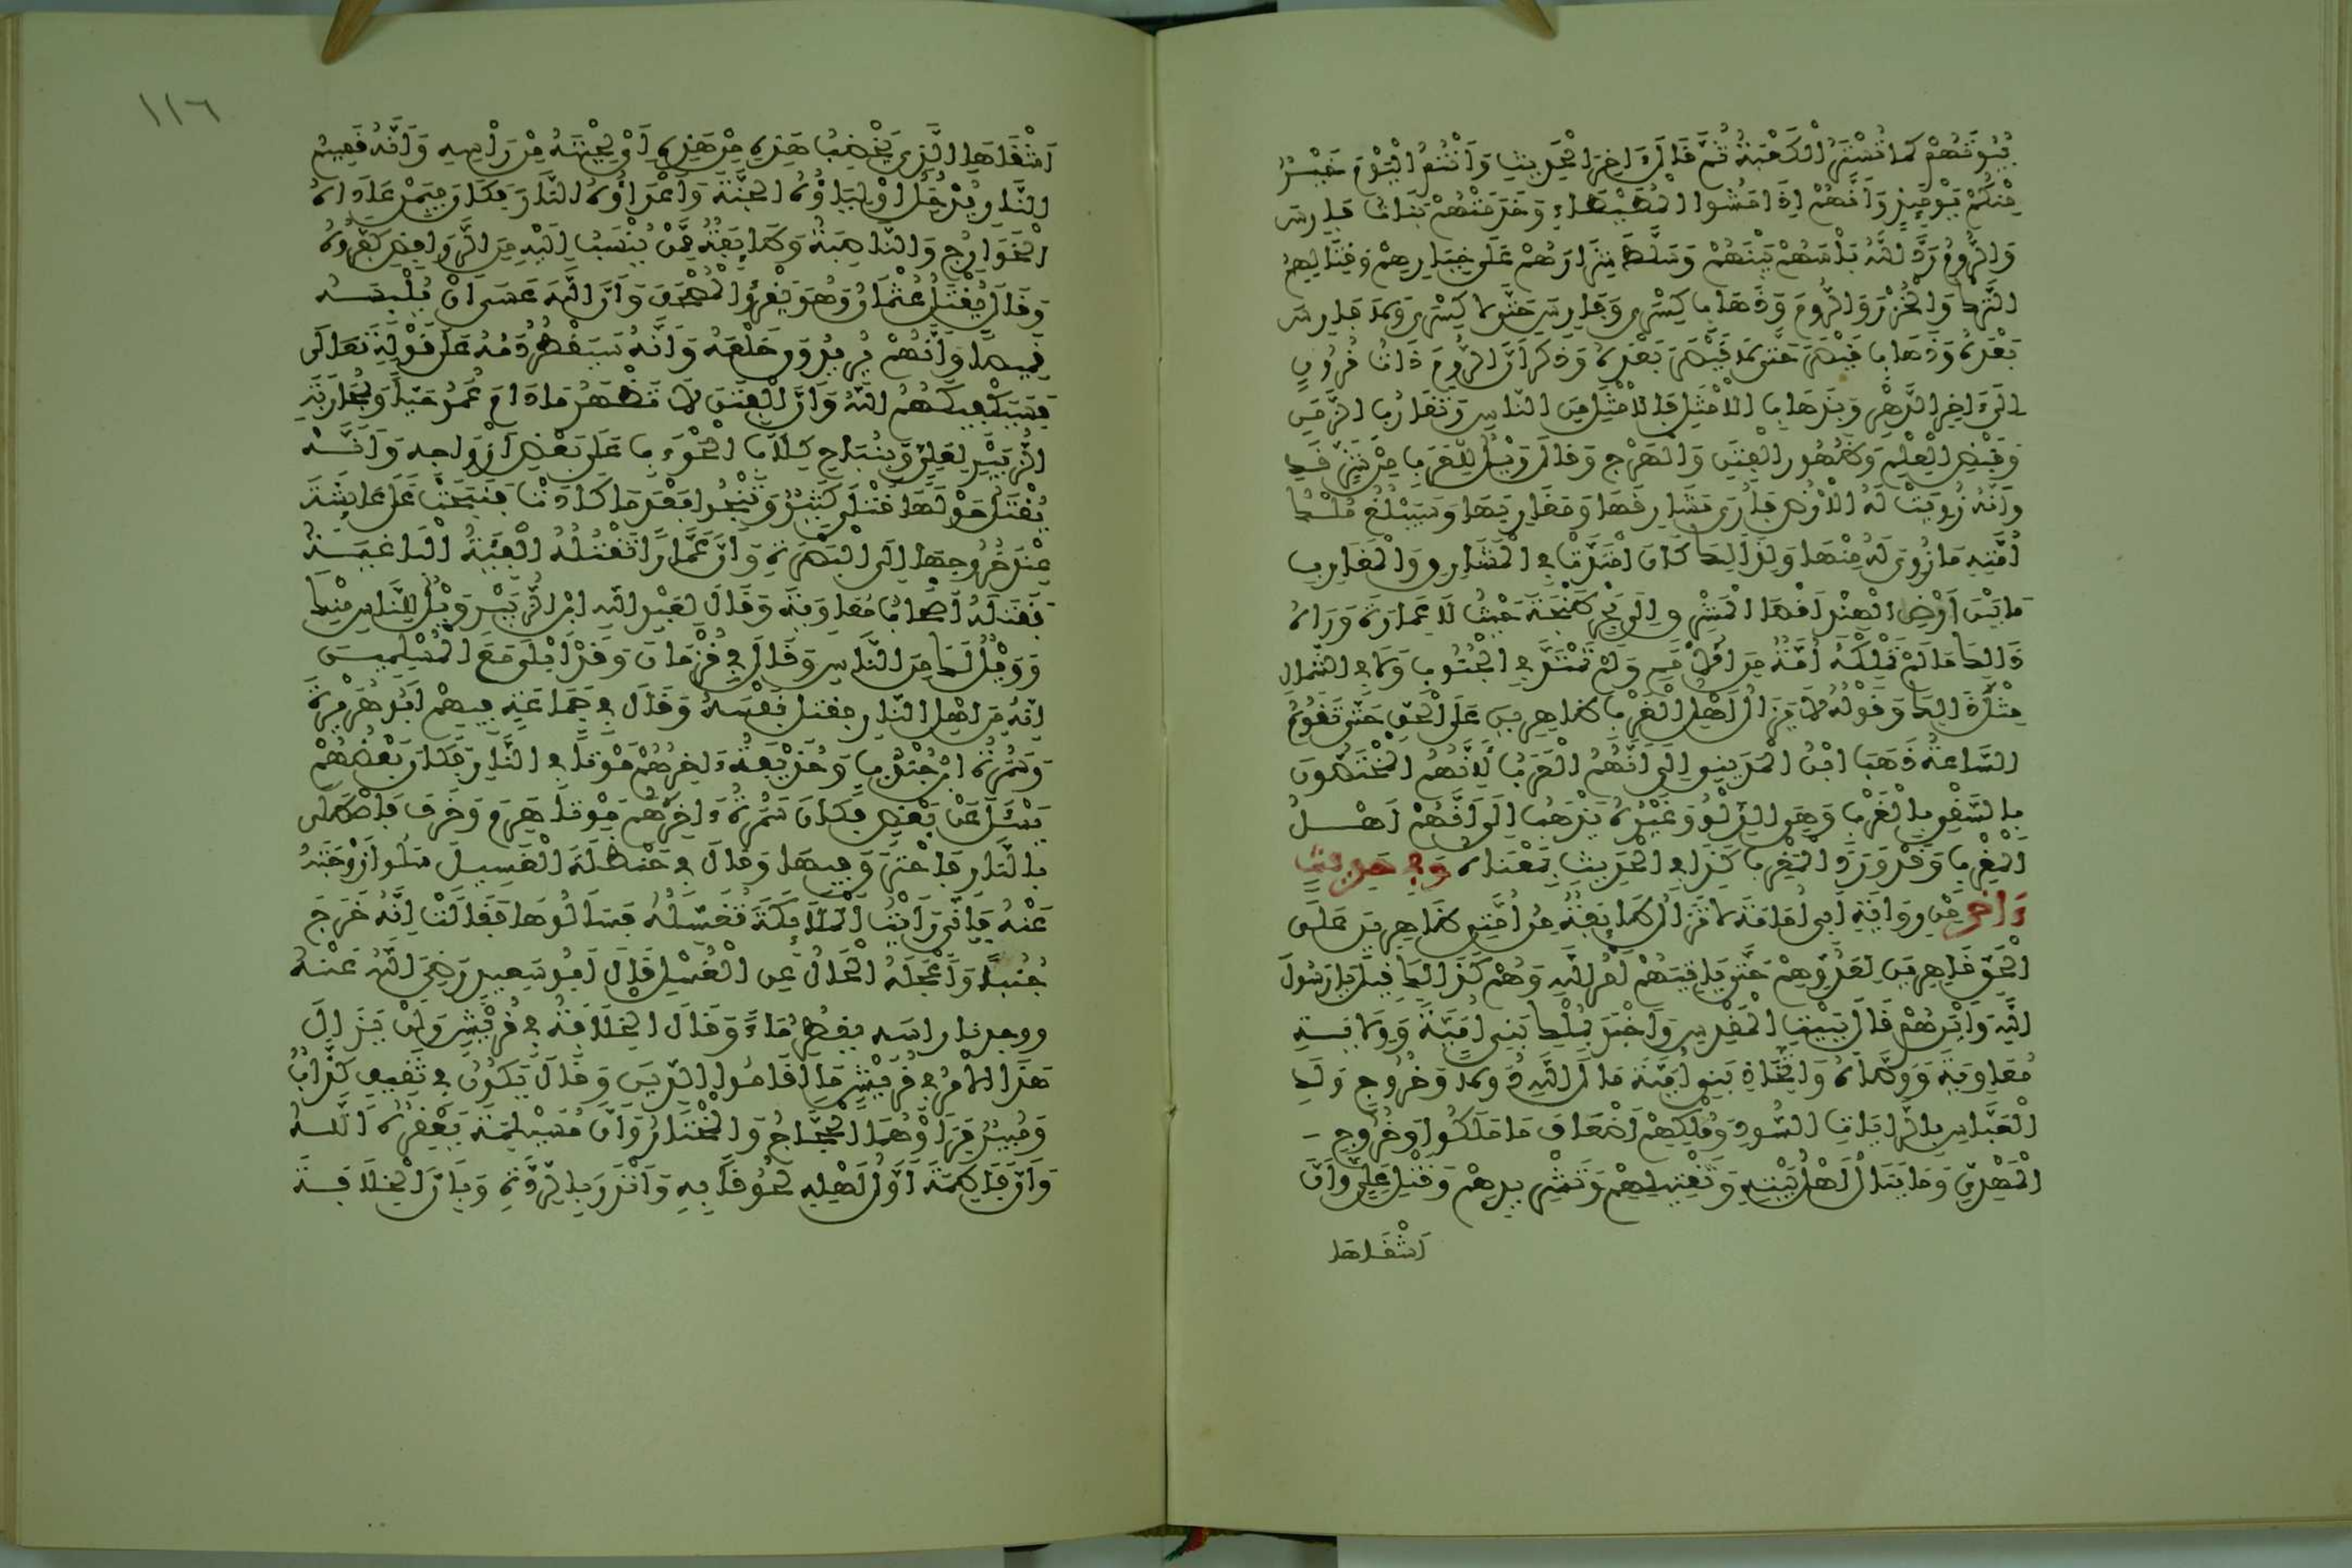 بُيُوتَهُمْ كَمَا تُسْتَرُ الْكَعْبَةُ ثُمَّ قَالَ ءَاخِرَ الْحَدِيثِ وَأَنْتُمُ الْيَوْمَ خَيْرٌ
مِنْكُمْ يَوْمَئِذٍ وَأَنَّهُمْ إِذَا مَشَوُا الْمُطَيْطَاءَ وَخَدَمَتْهُمْ بَنَاتُ فَارِسَ
وَالرُّومِ رَدَّ اللَّهُ بَأْسَهُمْ بَيْنَهُمْ وَسَلَّطَ شِرَارَهُمْ عَلَى خِيَارِهِمْ وَقِتَالِهِمُ
التُّرْكَ وَالْخُزْرَ وَالرُّومَ وَذَهَابِ كِسْرَى وَفَارِسَ حَتَّى لَا كِسْرَى وَلَا فَارِسَ
بَعْدَهُ وَذَهَابِ قَيْصَرَ حَتَّى لَا قَيْصَرَ بَعْدَهُ وَذَكَرَ أَنَّ الرُّومَ ذَاتُ قُرُونٍ
إِلَى ءَاخِرِ الدَّهْرِ وَبِذَهَابِ الْأَمْثَلِ فَالْأَمْثَلِ مِنَ النَّاسِ وَتَقَارُبِ الزَّمَنِ
وَقَبْضِ الْعِلْمِ وَظُهُورِ الْفِتَنِ وَالْهَرْجِ وَقَالَ وَيْلٌ لِلْعَرَبِ مِنْ شَرٍّ قَدِ
وَأَنَّهُ زُوِيَتْ لَهُ الْأَرْضُ فَأُرِيَ مَشَارِقَهَا وَمَغَارِبَهَا وَسَيَبْلُغُ مُلْكُ
أُمَّتِهِ مَا زُوِيَ لَهُ مِنْهَا وَلِذَلِكَ كَانَ امْتَدَّتْ فِي الْمَشَارِقِ وَالْمَغَارِبِ
مَا بَيْنَ أَرْضِ الْهِنْدِ أَقْصَا الْمَشْرِقِ إِلَى بَحْرِ طَنْجَةَ حَيْثُ لَا عِمَارَةَ وَرَاءَهُ
ذَلِكَ مَا لَمْ تَمْلِكْهُ أُمَّةٌ مِنَ الْأُمَمِ وَلَمْ تَمْتَدَّ فِي الْجَنُوبِ وَلَا فِي الشَّمَالِ
مِثْلَ ذَلِكَ وَقَوْلُهُ لَا يَزَالُ أَهْلُ الْغَرْبِ ظَاهِرِينَ عَلَى الْحَقِّ حَتَّى تَقُومَ
السَّاعَةُ ذَهَبَ ابْنُ الْمَدِينِي إِلَى أَنَّهُمُ الْعَرَبُ لِأَنَّهُمُ الْمُخْتَصُّونَ
بِالسَّقْيِ بِالْغَرْبِ وَهِيَ الدَّلْوُ وَغَيْرُهُ يَذْهَبُ إِلَى أَنَّهُمْ أَهْلُ
الْمَغْرِبِ وَقَدْ وَرَدَ الْمَغْرِبُ كَذَا فِي الْحَدِيثِ بِمَعْنَاهُ وَفِي حَدِيثٍ
ءَاخَرَ مِنْ رِوَايَةِ أَبِي أُمَامَةَ لَا تَزَالُ طَائِفَةٌ مِنْ أُمَّتِي ظَاهِرِينَ عَلَى
الْحَقِّ قَاهِرِينَ لِعَدُوِّهِمْ حَتَّى يَأْتِيَهُمْ أَمْرُ اللَّهِ وَهُمْ كَذَلِكَ قِيلَ يَا رَسُولَ
اللَّهِ وَأَيْنَ هُمْ قَالَ بِبَيْتِ الْمَقْدِسِ وَأَخْبَرَ بِمُلْكِ بَنِي أُمَيَّةَ وَوِلَايَةِ
مُعَاوِيَةَ وَوَصَّاهُ وَاتِّخَاذِ بَنِي أُمَيَّةَ مَالَ اللَّهِ دُوَلًا وَخُرُوجِ وَلَدِ
الْعَبَّاسِ بِالرَّايَاتِ السُّودِ وَمُلْكِهِمْ أَضْعَافَ مَا مَلَكُوا وَخُرُوجِ
الْمَهْدِيِّ وَمَا يَنَالُ أَهْلَ بَيْتِهِ وَتَقْتِيلِهِمْ وَتَشْرِيدِهِمْ وَقَتْلِ عَلِيٍّ وَأَنَّ
أَشْقَاهَا
١١٦
أَشْقَاهَا الَّذِي يَخْضِبُ هَذِهِ مِنْ هَذِهِ أَيْ لِحْيَتَهُ مِنْ رَأْسِهِ وَأَنَّهُ قَسِيمُ
النَّارِ يُدْخِلُ أَوْلِيَاؤُهُ الْجَنَّةَ وَأَعْدَاؤُهُ النَّارَ فَكَانَ فِيمَنْ عَادَاهُ
الْخَوَارِجُ وَالنَّاصِبَةُ وَطَائِفَةٌ مِمَّنْ يُنْسَبُ إِلَيْهِ مِنَ الرَّوَافِضِ كَفَّرُوهُ
وَقَالَ يُقْتَلُ عُثْمَانُ وَهُوَ يَقْرَأُ الْمُصْحَفَ وَأَنَّ اللَّهَ عَسَى أَنْ يُلْبِسَهُ
قَمِيصًا وَأَنَّهُمْ يُرِيدُونَ خَلْعَهُ وَأَنَّهُ سَيَقْطُرُ دَمُهُ عَلَى قَوْلِهِ تَعَالَى
فَسَيَكْفِيكَهُمُ اللَّهُ وَأَنَّ الْفِتَنَ لَا تَظْهَرُ مَا دَامَ عُمَرُ حَيًّا وَبِمُحَارَبَةِ
الزُّبَيْرِ لِعَلِيٍّ وَبِنُبَاحِ كِلَابِ الْحَوْءَبِ عَلَى بَعْضِ أَزْوَاجِهِ وَأَنَّهُ
يُقْتَلُ حَوْلَهَا قَتْلَى كَثِيرٌ وَتَنْجُو بَعْدَ مَا كَادَتْ فَنَبَحَتْ عَلَى عَائِشَةَ
عِنْدَ خُرُوجِهَا إِلَى الْبَصْرَةِ وَأَنَّ عَمَّارًا تَقْتُلُهُ الْفِئَةُ الْبَاغِيَةُ
فَقَتَلَهُ أَصْحَابُ مُعَاوِيَةَ وَقَالَ لِعَبْدِ اللَّهِ ابْنِ الزُّبَيْرِ وَيْلٌ لِلنَّاسِ مِنْكَ
وَوَيْلٌ لَكَ مِنَ النَّاسِ وَقَالَ فِي قُزْمَانَ وَقَدْ أَبْلَى مَعَ الْمُسْلِمِينَ
إِنَّهُ مِنْ أَهْلِ النَّارِ فَقَتَلَ نَفْسَهُ وَقَالَ فِي جَمَاعَةٍ فِيهِمْ أَبُو هُرَيْرَةَ
وَسَمُرَةُ ابْنُ جُنْدُبٍ وَحُذَيْفَةُ ءَاخِرُهُمْ مَوْتًا فِي النَّارِ فَكَانَ بَعْضُهُمْ
يَسْأَلُ عَنْ بَعْضٍ فَكَانَ سَمُرَةُ ءَاخِرَهُمْ مَوْتًا هَرِمَ وَخَرِفَ فَاصْطَلَى
بِالنَّارِ فَاحْتَرَقَ فِيهَا وَقَالَ فِي حَنْظَلَةَ الْغَسِيلِ سَلُوا زَوْجَتَهُ
عَنْهُ فَإِنِّي رَأَيْتُ الْمَلَائِكَةَ تُغَسِّلُهُ فَسَأَلُوهَا فَقَالَتْ إِنَّهُ خَرَجَ
جُنُبًا وَأَعْجَلَهُ الْحَالُ عَنِ الْغُسْلِ قَالَ أَبُو سَعِيدٍ رَضِيَ اللَّهُ عَنْهُ
ووجدنا راسه يقطر مَاءً وَقَالَ الْخِلَافَةُ فِي قُرَيْشٍ وَلَنْ يَزَالَ
هَذَا الْأَمْرُ فِي قُرَيْشٍ مَا أَقَامُوا الدِّينَ وَقَالَ يَكُونُ فِي ثَقِيفٍ كَذَّابٌ
وَمُبِيرٌ فَرَأَوْهُمَا الْحَجَّاجَ وَالْمُخْتَارَ وَأَنَّ مُسَيْلِمَةَ يَعْقِرُهُ اللَّهُ
وَأَنَّ فَاطِمَةَ أَوَّلُ أَهْلِهِ لُحُوقًا بِهِ وَأَنْذَرَ بِالرِّدَّةِ وَبِأَنَّ الْخِلَافَةَ